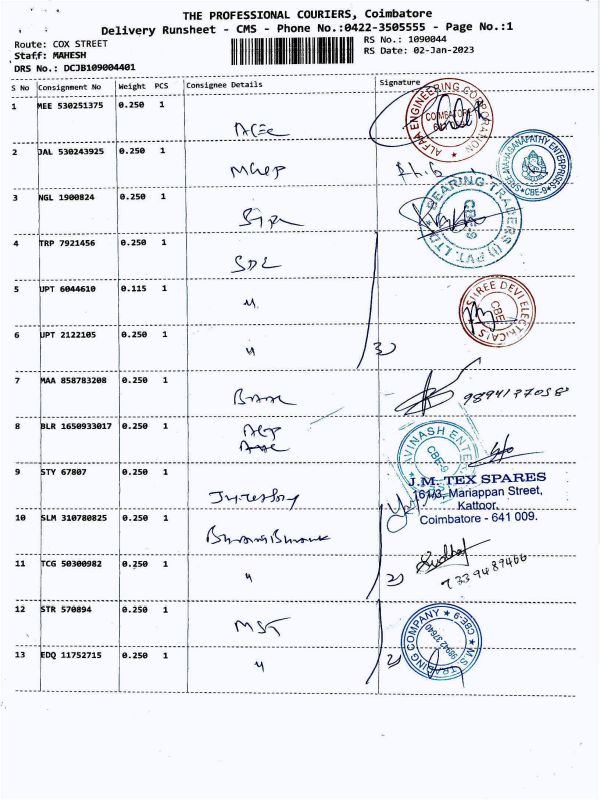 THE PROFESSIONAL COURIERS, Coimbatore
Delivery Runsheet - CMS - Phone No.:0422-3505555 - Page No.:1
Route: COX STREET
RS No.: 1090044
Staff: MAHESH
RS Date: 02-Jan-2023
DRS No.: DCJB109004401
S No Consignment No Weight PCS Consignee Details Signature
1 MEE 530251375 0.250 1
ALFAA ENGINEERING CORPORATION
COIMBATORE
2 JAL 530243925 0.250 1
SREE MAHAGANAPATHY ENTERPRISES
CBE-9
3 NGL 1900824 0.250 1
BEARING TRADERS (I) PVT. LTD
CBE-9
4 TRP 7921456 0.250 1
SDL
5 UPT 6044610 0.115 1
"
SHREE DEVI ELECTRICALS
CBE
6 UPT 2122105 0.250 1
"
3)
7 MAA 858783208 0.250 1
8 BLR 1650933017 0.250 1
AVINASH ENTER
CBE-9
9 STY 67807 0.250 1
J.M. TEX SPARES
161/3, Mariappan Street,
Kattoor,
Coimbatore - 641 009.
10 SLM 310780825 0.250 1
11 TCG 50300982 0.250 1
"
2)
7339489466
12 STR 570894 0.250 1
MST
M.S. TRADING COMPANY
CBE-9
98942 37640
13 EDQ 11752715 0.250 1
"
2)